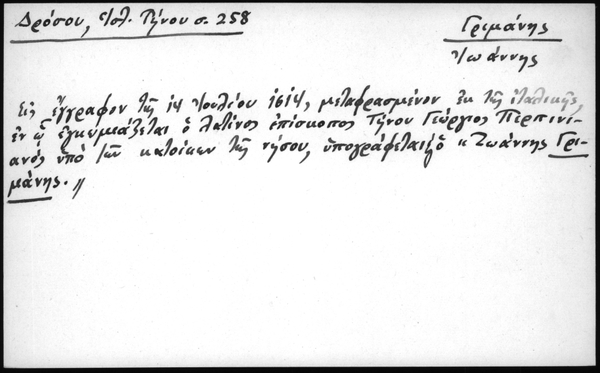 Δρόσου, Ἱστ. Τήνου σ. 258
Γριμάνης
Ἰωάννης
Εἰς ἔγγραφον τῆς 14 Ἰουλίου 1614, μεταφρασμένον ἐκ τῆς ἰταλικῆς,
ἐν ᾧ ἐγκωμιάζεται ὁ λατῖνος ἐπίσκοπος Τήνου Γεώργιος Περπινι-
ανός ὑπό τῶν κατοίκων τῆς νήσου, ὑπογράφεται ὁ " Ἰωάννης Γρι-
μάνης. "